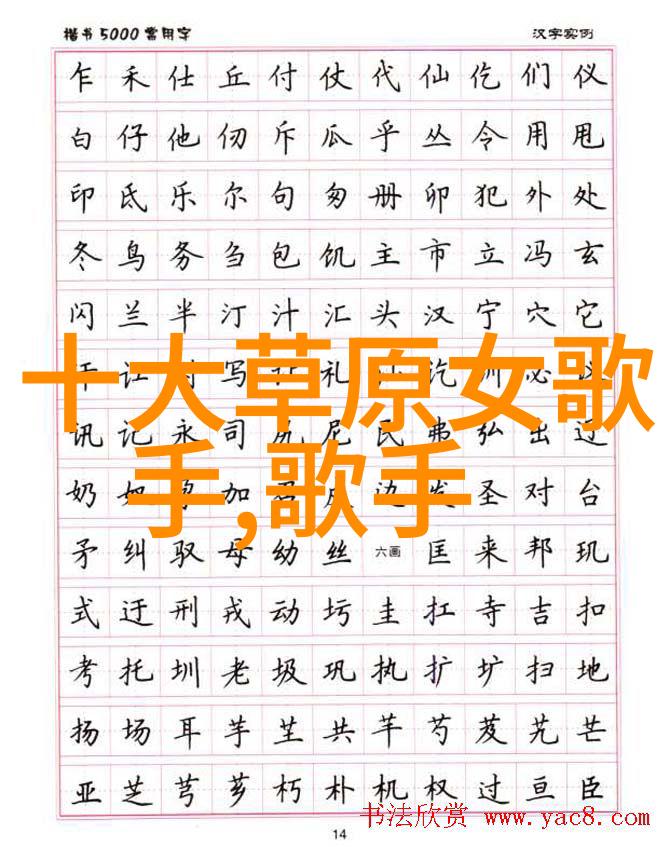 楷书5000常用字 汉字实例
乍禾仕丘付仗代仙仡们仪
白仔他仞斥瓜乎丛令用甩
印氐乐尔句匆册卯犯外处
冬鸟务刍包饥主市立冯玄
闪兰半汀汁汇头汉宁穴它
写礼必
十大草原女歌
讯记永司尻尼民弗弘出辽
手,歌手
奶加边圣对台
矛纠驭母幼丝六画匡来邦玑
式迂刑戎动圬圭扛寺吉扣
考托圳老圾巩执扩圹扫地
扬场耳芋芏共芊芍芨艽芒
亚芝芎芗朽朴机权过亘臣
书法欣赏 www.yac8.com
14